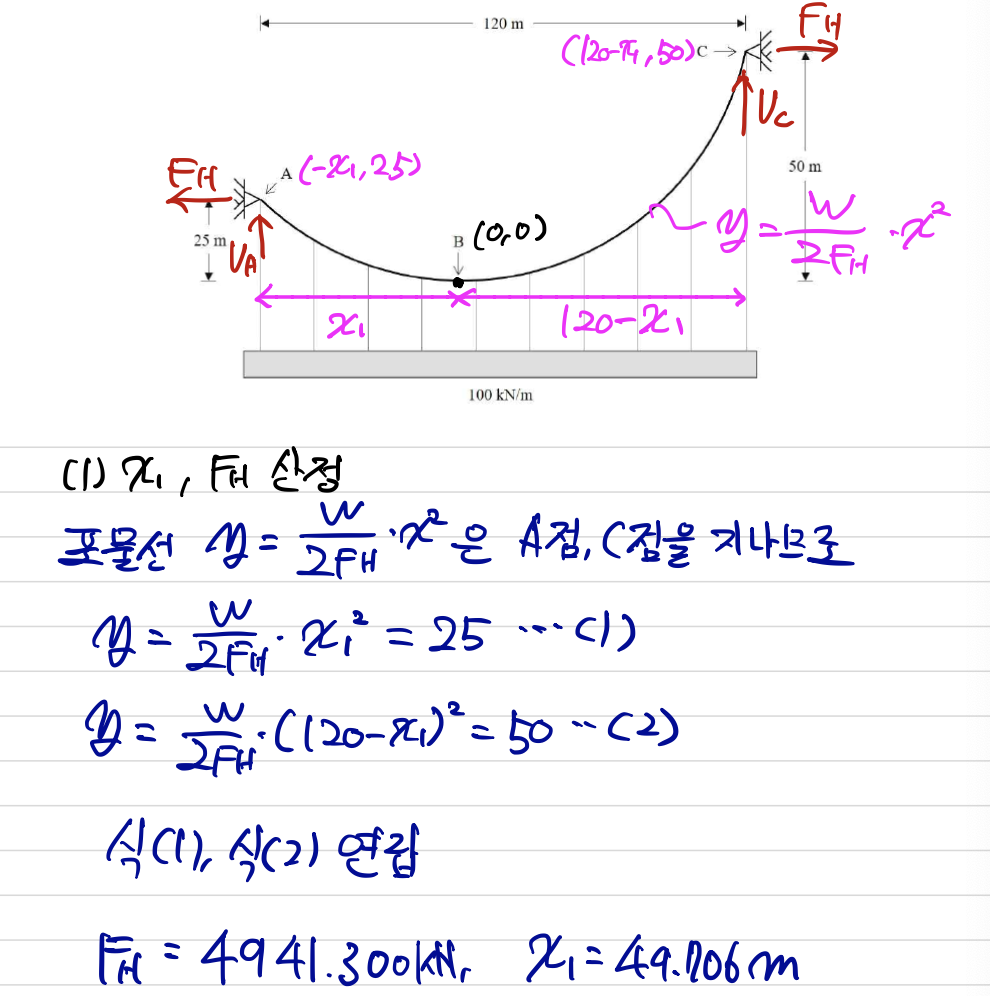 120 m
FH
(120-x₁, 50) C
VC
FH
A (-x₁, 25)
50 m
25 m
VA
B (0,0)
y = W/2FH · x²
x₁
120-x₁
100 kN/m
(1) x₁, FH 산정
포물선 y = W/2FH · x² 은 A점, C점을 지나므로
y = W/2FH · x₁² = 25 ··· (1)
y = W/2FH · (120-x₁)² = 50 ·· (2)
식(1), 식(2) 연립
FH = 4941.300kN, x₁ = 49.706m